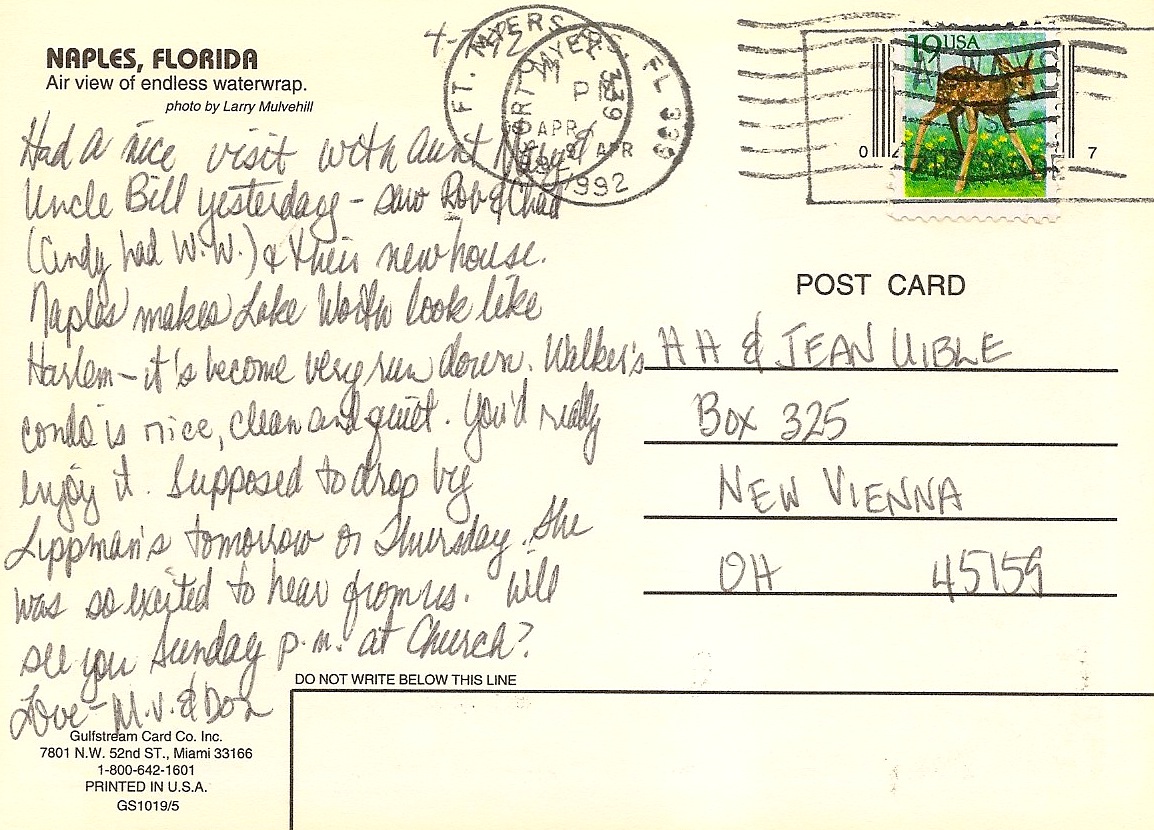 NAPLES, FLORIDA
Air view of endless waterwrap.
photo by Larry Mulvehill
Had a nice visit with Aunt &
Uncle Bill yesterday - saw Rob & Chad
(Cindy had W.W.) & their new house.
Naples makes Lake Worth look like
Harlem - it's become very run down. Walker's
condo is nice, clean and quiet. You'd really
enjoy it. Supposed to drop by
Lippman's tomorrow or Thursday. She
was so excited to hear from us. Will
see you Sunday p.m. at Church?
Love - M.V. & Don
Gulfstream Card Co. Inc.
7801 N.W. 52nd ST., Miami 33166
1-800-642-1601
PRINTED IN U.S.A.
GS1019/5
FT. MYERS FL 339
APR
1992
19 USA
POST CARD
HH & JEAN UIBLE
Box 325
NEW VIENNA
OH 45159
DO NOT WRITE BELOW THIS LINE